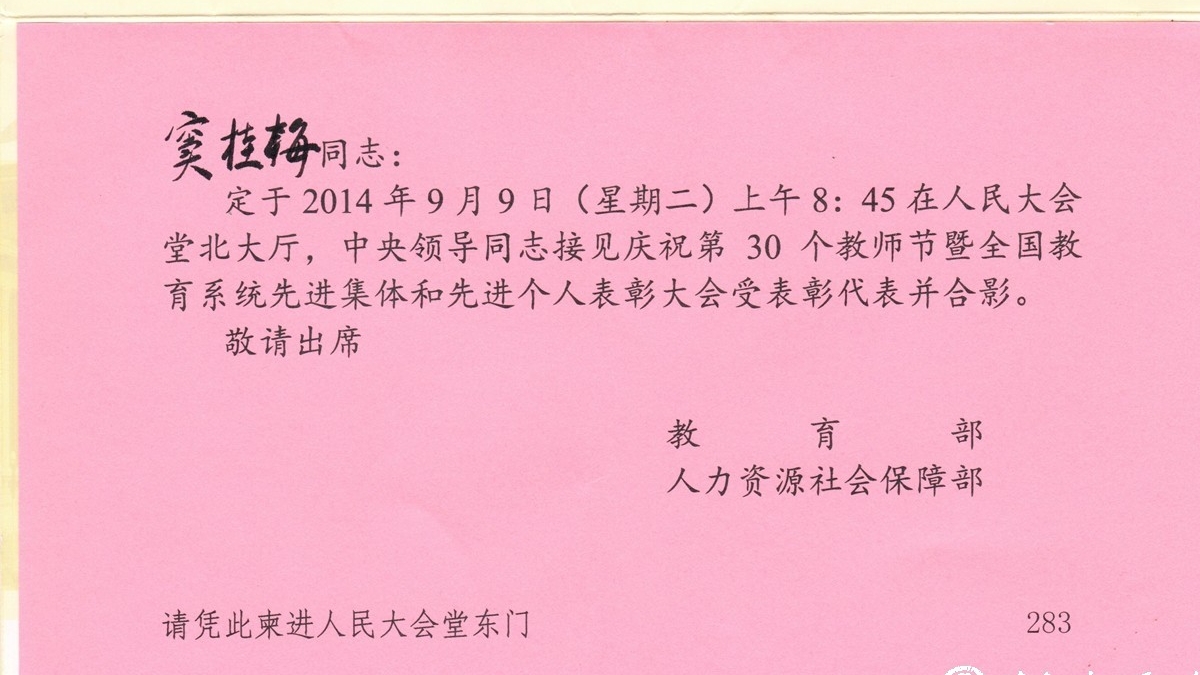 窦桂梅同志：
定于 2014 年 9 月 9 日（星期二）上午 8：45 在人民大会
堂北大厅，中央领导同志接见庆祝第 30 个教师节暨全国教
育系统先进集体和先进个人表彰大会受表彰代表并合影。
敬请出席
教 育 部
人力资源社会保障部
请凭此柬进人民大会堂东门 283